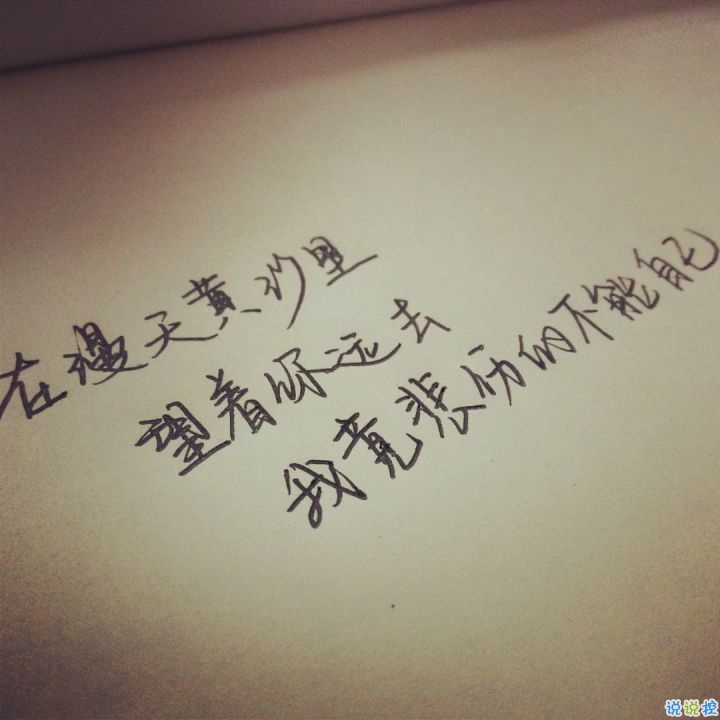 在漫天黄沙里
望着你远去
我竟悲伤的不能自己
说说控